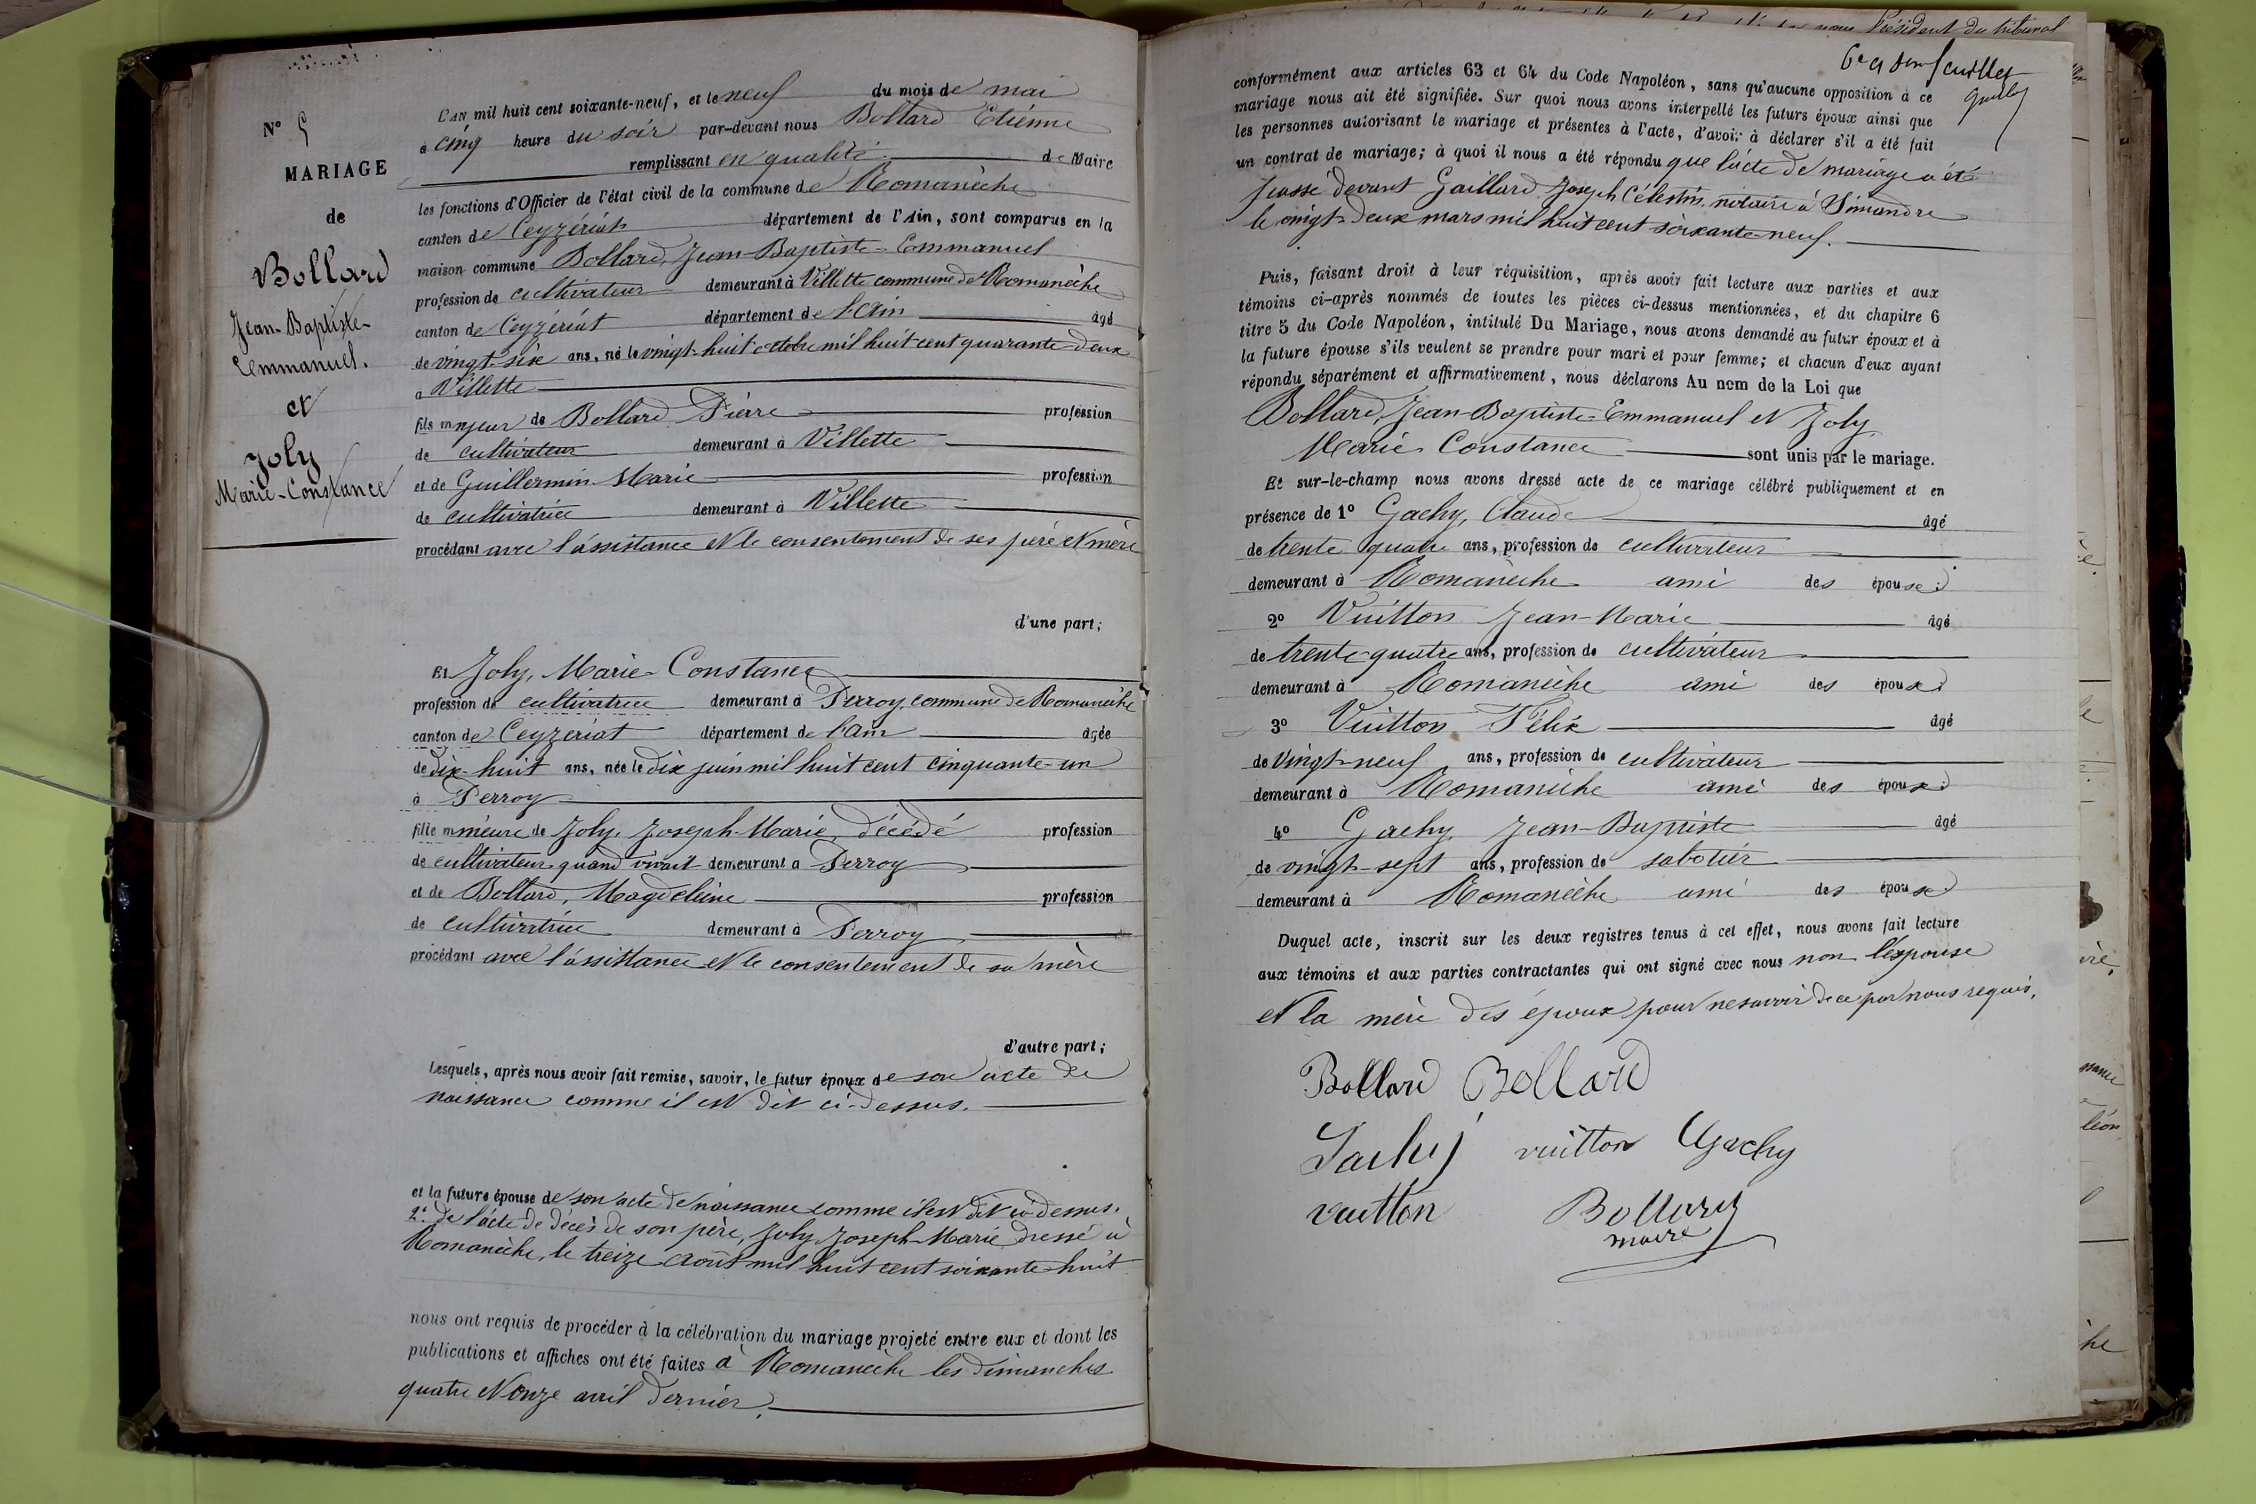 N° 5
MARIAGE
de
Bollard
Jean-Baptiste-
Emmanuel.
et
Joly
Marie-Constance
L'AN mil huit cent soixante-neuf, et le neuf du mois de mai
à cinq heure du soir par-devant nous Bollard Etiénne
remplissant en qualité de Maire
les fonctions d'Officier de l'état civil de la commune de Romanèche
canton de Ceyzériat département de l'Ain, sont comparus en la
maison commune Bollard, Jean-Baptiste-Emmanuel
profession de cultivateur demeurant à Villette commune de Romanèche
canton de Ceyzériat département de l'Ain âgé
de vingt-six ans, né le vingt-huit octobre mil huit cent quarante-deux
à Villette
fils majeur de Bollard Pierre profession
de cultivateur demeurant à Villette
et de Guillermin Marie profession
de cultivatrice demeurant à Villette
procédant avec l'assistance et le consentement de ses père et mère
d'une part;
Et Joly, Marie-Constance
profession de cultivatrice demeurant à Perroy, commune de Romanèche
canton de Ceyzériat département de l'Ain âgée
de dix-huit ans, née le dix juin mil huit cent cinquante-un
à Perroy
fille mineure de Joly, Joseph-Marie, décédé profession
de cultivateur quand vivait demeurant a Perroy
et de Bollard, Magdeleine profession
de cultivatrice demeurant à Perroy
procédant avec l'assistance et le consentement de sa mère
d'autre part;
Lesquels, après nous avoir fait remise, savoir, le futur époux de son acte de
naissance comme il est dit ci-dessus.
et la future épouse de son acte de naissance comme il est dit ci-dessus.
2° de l'acte de décès de son père, Joly, Joseph-Marie, dressé à
Romanèche, le treize août mil huit cent soixante-huit
nous ont requis de procéder à la célébration du mariage projeté entre eux et dont les
publications et affiches ont été faites à Romanèche les dimanches
quatre et onze avril dernier.
Président du tribunal
6e et feuillet
conformément aux articles 63 et 64 du Code Napoléon, sans qu'aucune opposition à ce
mariage nous ait été signifiée. Sur quoi nous avons interpellé les futurs époux ainsi que
les personnes autorisant le mariage et présentes à l'acte, d'avoir à déclarer s'il a été fait
un contrat de mariage; à quoi il nous a été répondu que l'acte de mariage a été
passé devant Gaillard Joseph Célestin, notaire à Simandre
le vingt-deux mars mil huit cent soixante-neuf.
Puis, faisant droit à leur réquisition, après avoir fait lecture aux parties et aux
témoins ci-après nommés de toutes les pièces ci-dessus mentionnées, et du chapitre 6
titre 5 du Code Napoléon, intitulé Du Mariage, nous avons demandé au futur époux et à
la future épouse s'ils veulent se prendre pour mari et pour femme; et chacun d'eux ayant
répondu séparément et affirmativement, nous déclarons Au nom de la Loi que
Bollard, Jean-Baptiste-Emmanuel et Joly
Marie-Constance sont unis par le mariage.
Et sur-le-champ nous avons dressé acte de ce mariage célébré publiquement et en
présence de 1° Gachy, Claude âgé
de trente quatre ans, profession de cultivateur
demeurant à Romanèche ami des époux
2° Vuitton Jean-Marie âgé
de trente-quatre ans, profession de cultivateur
demeurant à Romanèche ami des époux
3° Vuitton Félix âgé
de vingt-neuf ans, profession de cultivateur
demeurant à Romanèche ami des époux
4° Gachy Jean-Baptiste âgé
de vingt-sept ans, profession de sabotier
demeurant à Romanèche ami des époux
Duquel acte, inscrit sur les deux registres tenus à cet effet, nous avons fait lecture
aux témoins et aux parties contractantes qui ont signé avec nous non l'épouse
et la mère des époux pour ne savoir de ce par nous requis.
Bollard Bollard
Gachy vuitton Gachy
vuitton Bollard
maire